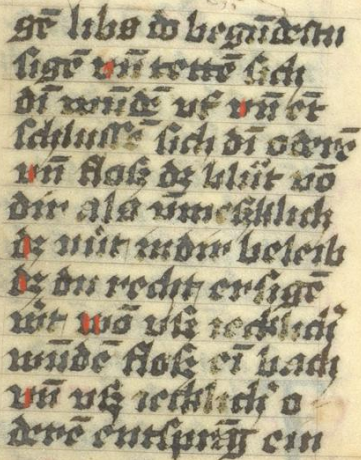 gē libs do begūdestu
sigē vn̄ tettē sich
di wūdē vf vn̄ et̄
schlussē sich di oderē
vn̄ floß dz blůt vō
dir als v̄meßklich
dz nüt indir beleib
dz du recht ersigē
wt wō vß iecklich
wūdē floß ei bach
vn̄ vß iecklich o
derē entsprāg ein